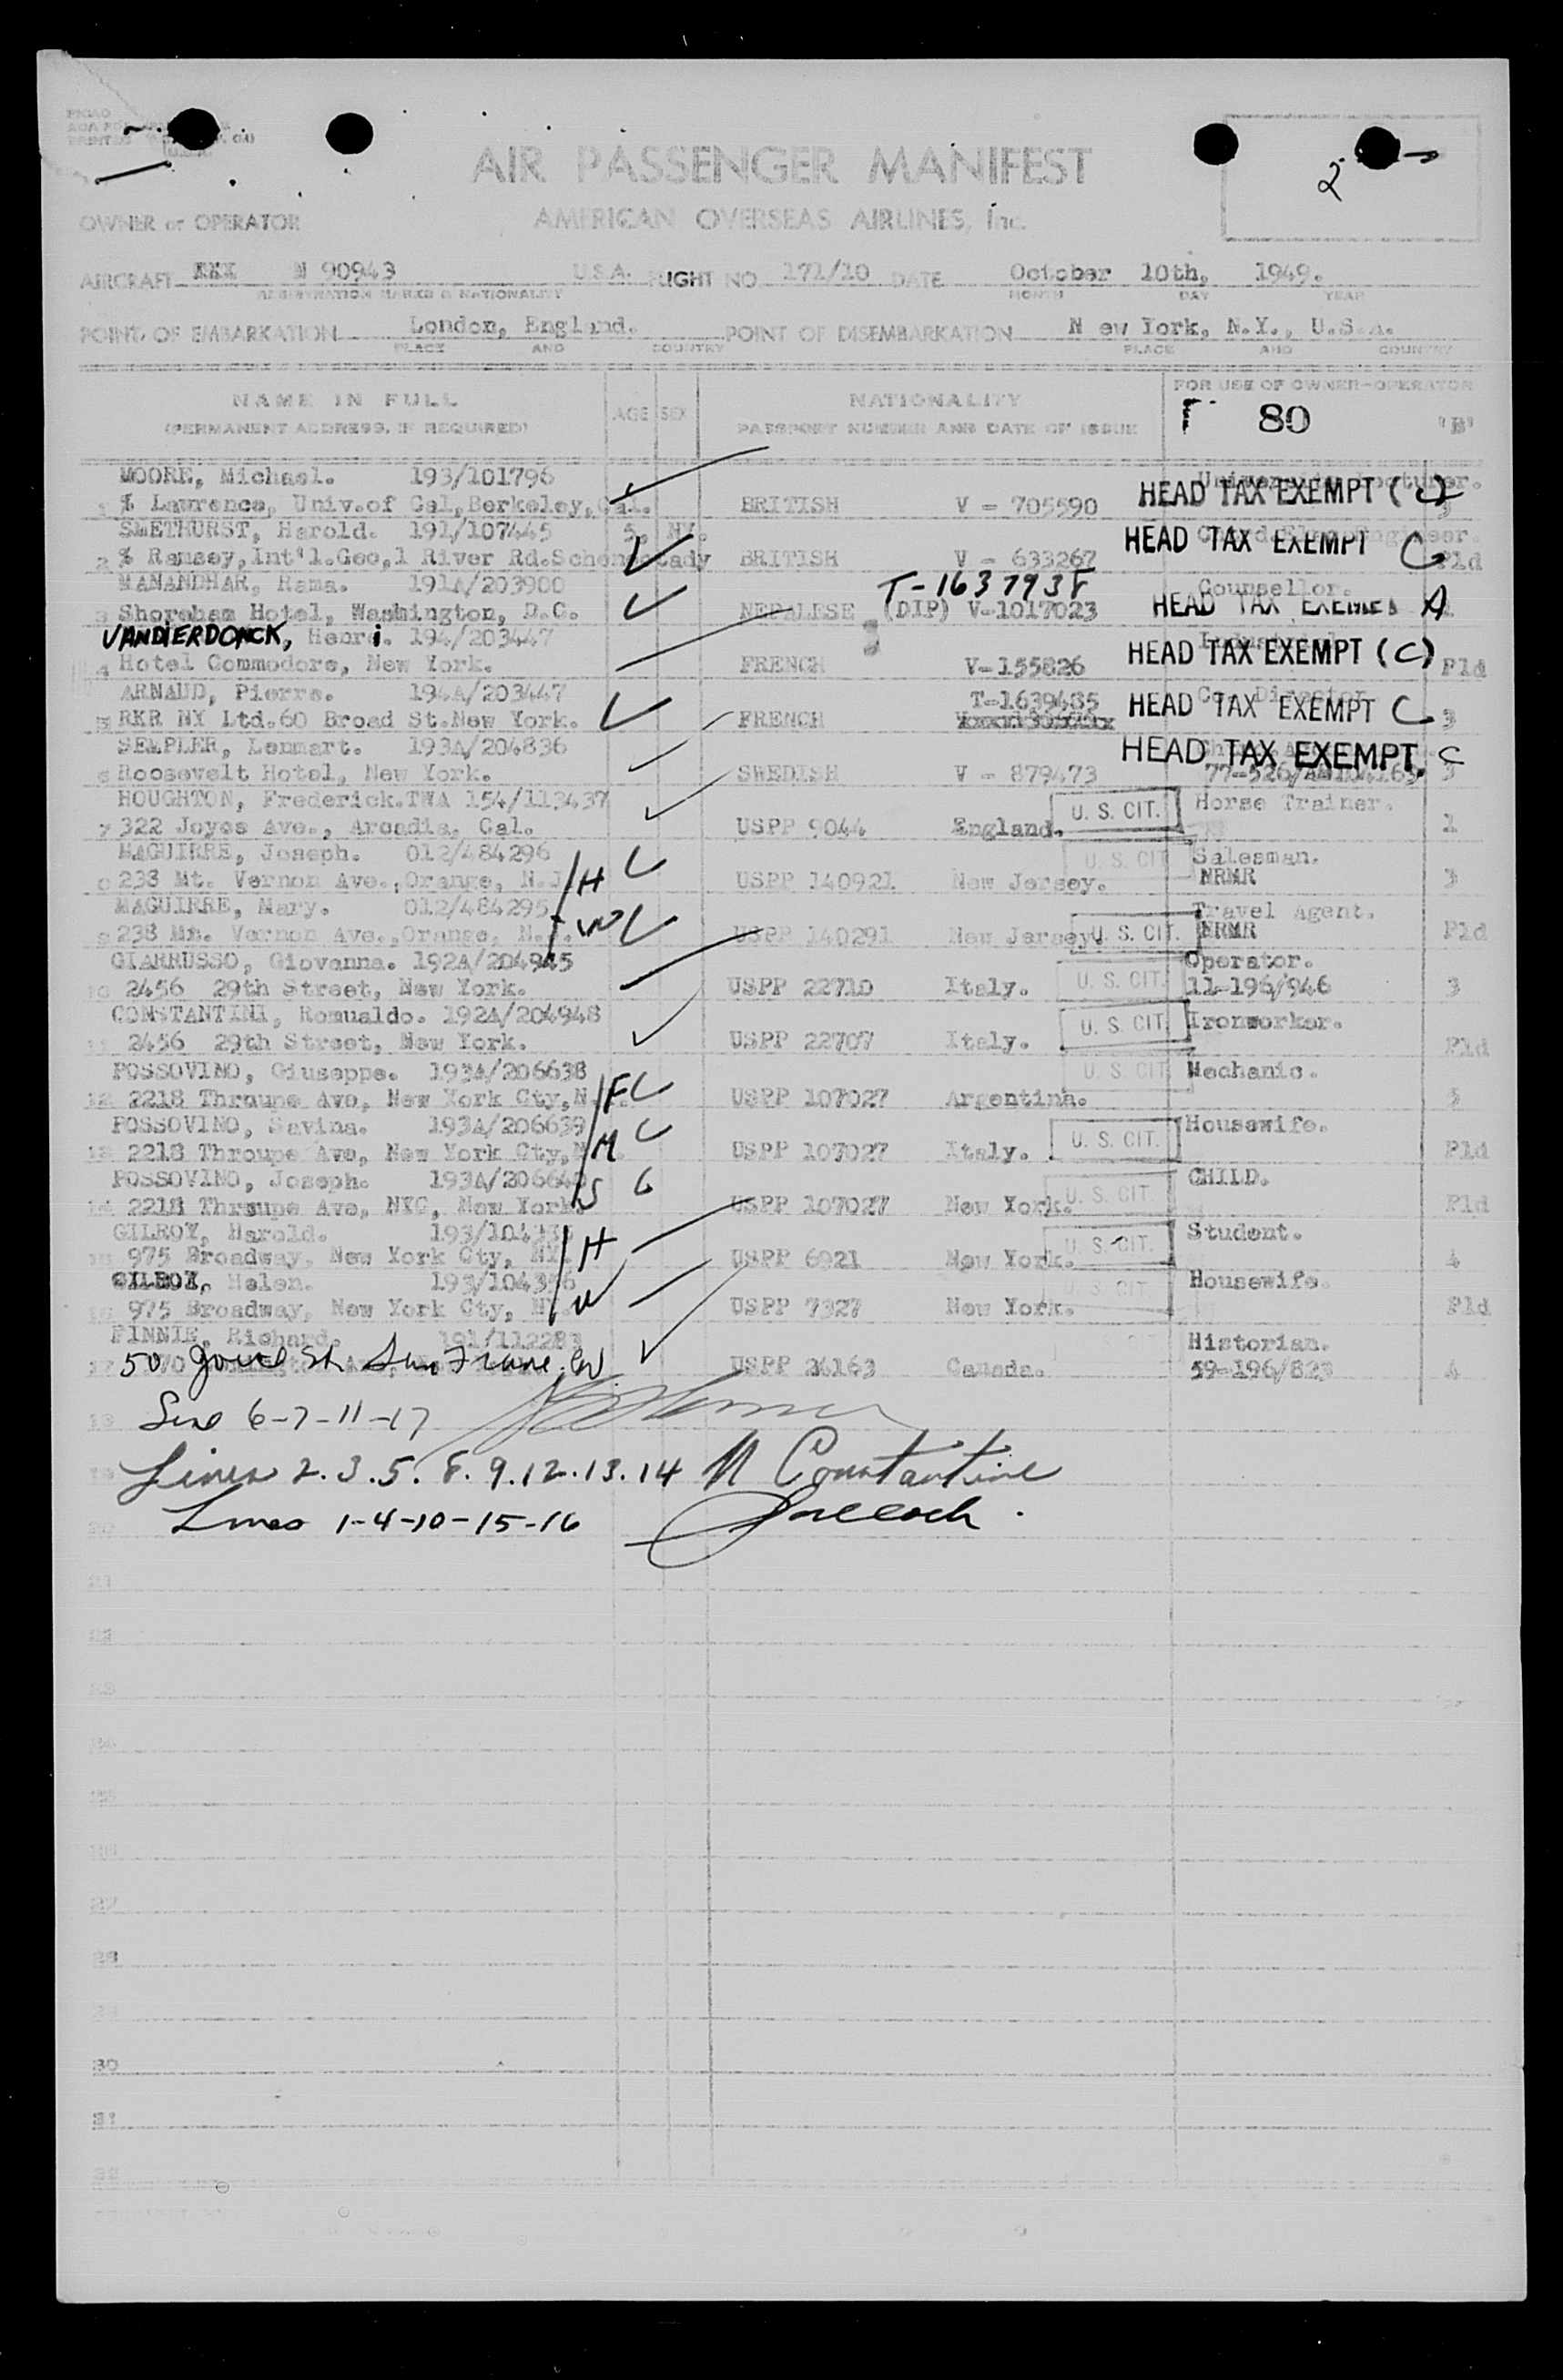 2
AIR PASSENGER MANIFEST
OWNER or OPERATOR AMERICAN OVERSEAS AIRLINES, Inc.
AIRCRAFT XXX N 90943 U.S.A. FLIGHT NO. 171/10 DATE October 10th, 1949.
REGISTRATION MARKS & NATIONALITY MONTH DAY YEAR
POINT OF EMBARKATION London, England. POINT OF DISEMBARKATION N ew York, N.Y., U.S.A.
PLACE AND COUNTRY PLACE AND COUNTRY
NAME IN FULL AGE SEX NATIONALITY FOR USE OF OWNER-OPERATOR
(PERMANENT ADDRESS, IF REQUIRED) PASSPORT NUMBER AND DATE OF ISSUE 80 "B"
MOORE, Michael. 193/101796
1 % Lawrence, Univ.of Cal,Berkeley,Cal. BRITISH V - 705590 HEAD TAX EXEMPT (C) 3
SMETHURST, Harold. 191/107445 5, NY. HEAD TAX EXEMPT C
2 % Ramsey,Int'l.Geo,1 River Rd.Schenectady BRITISH V - 633267 Pld
MANANDHAR, Rama. 191A/203900 T-1637938 Counsellor.
3 Shoreham Hotel, Washington, D.C. NEPALESE (DIP) V-1017023 HEAD TAX EXEMPT A
VANDIERDONCK, Henri. 194/203447
4 Hotel Commodore, New York. FRENCH V-155826 HEAD TAX EXEMPT (C) Pld
ARNAUD, Pierre. 194A/203447 T-1639485
5 RKR NY Ltd.60 Broad St.New York. FRENCH HEAD TAX EXEMPT C 3
SEMPLER, Lenmart. 193A/204836 HEAD TAX EXEMPT. C
6 Roosevelt Hotel, New York. SWEDISH V - 879473 3
HOUGHTON, Frederick.TWA 154/113437 Horse Trainer.
7 322 Joyce Ave., Arcadia, Cal. USPP 9044 England. U. S. CIT. 1
MAGUIRRE, Joseph. 012/484296 Salesman.
8 238 Mt. Vernon Ave.,Orange, N.J. H USPP 140921 New Jersey. U. S. CIT. NRMR 3
MAGUIRRE, Mary. 012/484295 Travel Agent.
9 238 Mn. Vernon Ave.,Orange, N.J. W USPP 140291 New Jersey. U. S. CIT. NRMR Pld
GIARRUSSO, Giovanna. 192A/204945 Operator.
10 2456 29th Street, New York. USPP 22710 Italy. U. S. CIT. 11-196/946 3
CONSTANTINI, Romualdo. 192A/204948 Ironworker.
11 2456 29th Street, New York. USPP 22707 Italy. U. S. CIT. Pld
POSSOVINO, Giuseppe. 193A/206638 Mechanic.
12 2218 Throupe Ave, New York Cty,N.Y. F USPP 107027 Argentina. U. S. CIT. 5
POSSOVINO, Savina. 193A/206639 Housewife.
13 2218 Throupe Ave, New York Cty,N. M USPP 107027 Italy. U. S. CIT. Pld
POSSOVINO, Joseph. 193A/206640 CHILD.
14 2218 Throupe Ave, NYC, New York. S USPP 107027 New York. U. S. CIT. Pld
GILROY, Harold. Student.
15 975 Broadway, New York Cty, NY. H USPP 6921 New York. U. S. CIT. 4
GILROY, Helen. 193/104356 Housewife.
16 975 Broadway, New York Cty, NY. W USPP 7327 New York. U. S. CIT. Pld
FINNIE, Richard. 191/112283 Historian.
17 50 St. San USPP 24163 Canada. 59-196/823 4
18 Line 6-7-11-17
19 Lines 2.3.5.8.9.12.13.14 N Constantine
20 Lines 1-4-10-15-16
21
22
23
24
25
26
27
28
29
30
31
32